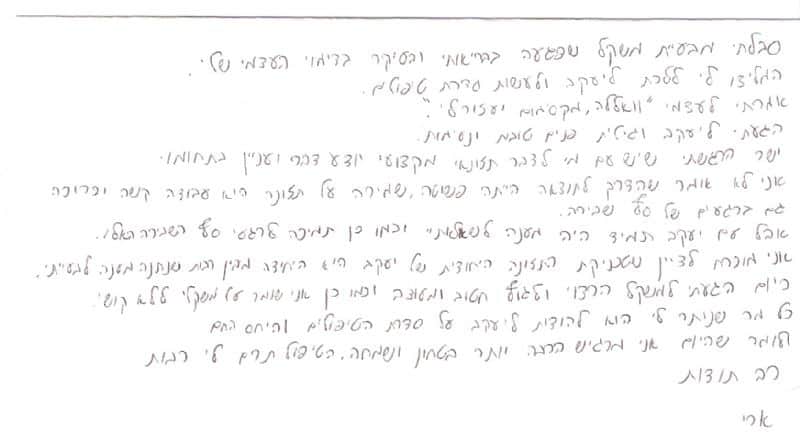 סבלתי מבעיית משקל שפגעה בבריאותי ובעיקר בדימוי העצמי שלי.
המליצו לי ללכת ליעקב ולעשות סדרת טיפולים.
אמרתי לעצמי "וואללה, מקסימום יעזור לי".
הגעתי ליעקב וגיליתי פנים טובות ונעימות.
ישר הרגשתי שיש עם מי לדבר תזונאי מקצועי יודע דבר ועניין בתחומו.
אני לא אומר שהדרך לתוצאה הייתה פשוטה, שמירה על תזונה היא עבודה קשה וכרוכה
גם ברגעים של סף שבירה.
אבל עם יעקב תמיד היה מענה לשאלותיי וכמו כן תמיכה לרגעי סף השבירה האלו.
אני מוכרח לציין שטכניקת התזונה היחודית של יעקב היא היחידה מבין רבות שנתנה מענה לבעייתי.
כיום הגעתי למשקל הרצוי ולגוף חטוב ומחוטב וכמו כן אני שומר על משקלי ללא קושי.
כל מה שניתר לי הוא להודות ליעקב על סדרת הטיפולים והיחס החם
ולומר שהיום אני מרגיש הרבה יותר בטחון ושמחה. הטיפול תרם לי רבות
רב תודות
ארי